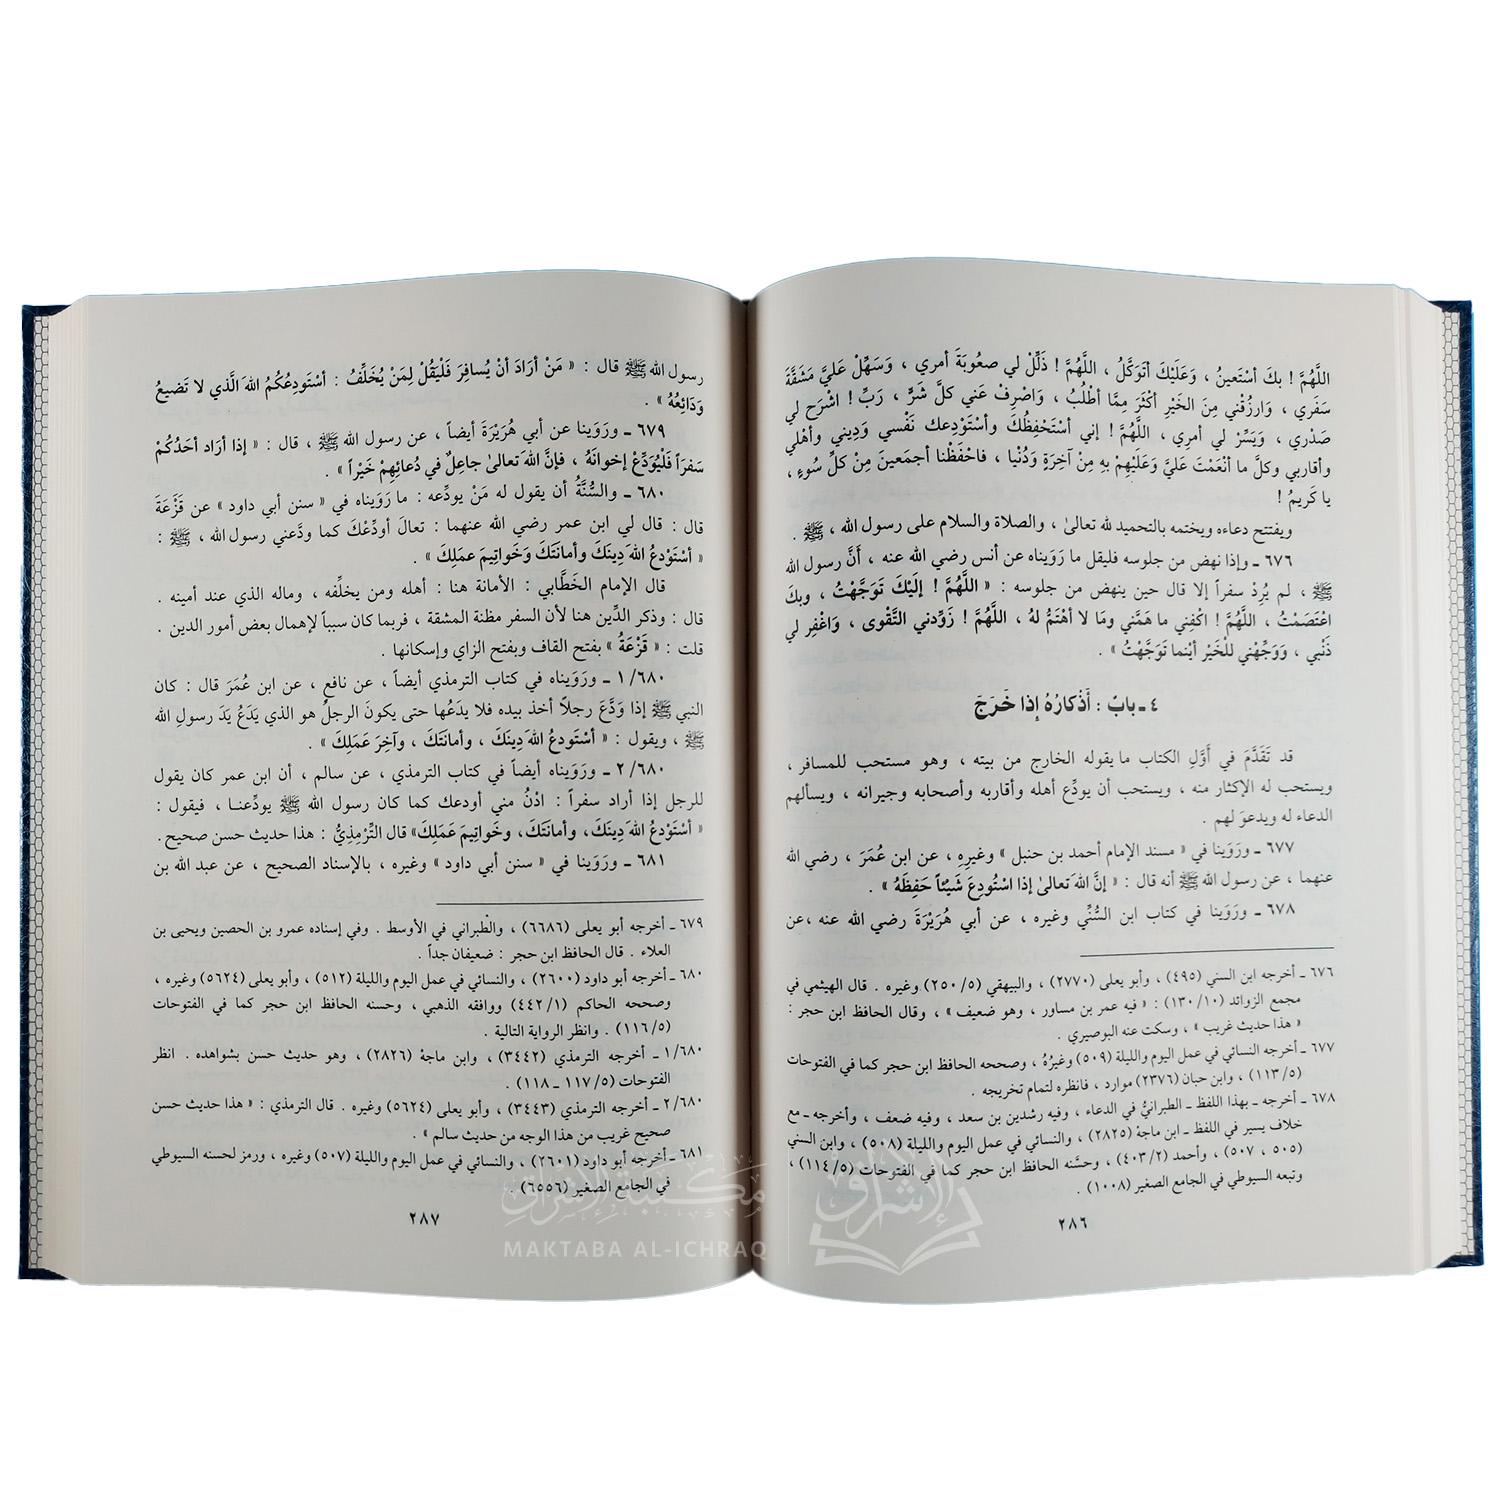 اللَّهُمَّ ! بكَ أسْتَعينُ ، وَعَلَيْكَ أتَوَكَّلُ ، اللَّهُمَّ ! ذَلِّلْ لي صعُوبَةَ أمري ، وَسَهِّلْ عَليَّ مَشَقَّةَ
سَفَري ، وَارزُقْني مِنَ الخَيْرِ أكْثَرَ مِمَّا أطْلُبُ ، وَاصْرِفْ عَني كلَّ شَرٍّ ، رَبِّ ! اشْرَح لي
صَدْري ، وَيَسِّرْ لي أمرِي ، اللَّهُمَّ ! إني أسْتَحْفِظُكَ وأسْتَوْدِعك نَفْسي وَدِيني وأهْلي
وأقاربي وكلَّ ما أنْعَمْتَ عَليَّ وَعَلَيْهِمْ بِهِ مِنْ آخِرَةٍ وَدُنْيا ، فاحْفَظْنا أجمَعينَ مِنْ كلِّ سُوءٍ ،
يا كَريمُ !
ويفتتح دعاءه ويختمه بالتحميد لله تعالىٰ ، والصلاة والسلام على رسول الله ، ﷺ .
٦٧٦ ـ وإذا نهض من جلوسه فليقل ما رَوَيناه عن أنس رضي الله عنه ، أنَّ رسول الله
ﷺ ، لم يُرِدْ سفراً إلا قال حين ينهض من جلوسه : « اللَّهُمَّ ! إلَيْكَ تَوَجَّهْتُ ، وبكَ
اعْتَصَمْتُ ، اللَّهُمَّ ! اكْفِني ما هَمَّني ومَا لا أهْتَمُّ لهُ ، اللَّهُمَّ ! زَوِّدْني التَّقْوى ، وَاغْفِر لي
ذَنْبي ، وَوَجِّهْني للْخَيْرِ أيْنما تَوَجَّهْتُ » .
٤ ـ بابٌ : أَذْكارُهُ إِذا خَرَجَ
قد تَقَدَّمَ في أَوَّلِ الكتاب ما يقوله الخارج من بيته ، وهو مستحب للمسافر ،
ويستحب له الإكثار منه ، ويستحب أن يودِّع أهله وأقاربه وأصحابه وجيرانه ، ويسألهم
الدعاء له ويدعوَ لهم .
٦٧٧ ـ ورَوَينا في « مسند الإمام أحمد بن حنبل » وغيرِهِ ، عن ابن عُمَرَ ، رضي الله
عنهما ، عن رسول الله ﷺ أنه قال : « إنَّ اللهَ تعالىٰ إذا اسْتُودِعَ شَيْئاً حَفِظَهُ » .
٦٧٨ ـ ورَوَينا في كتاب ابن السُّنِّي وغيره ، عن أبي هُرَيْرَةَ رضي الله عنه ، عن
٦٧٦ ـ أخرجه ابن السني (٤٩٥) ، وأبو يعلى (٢٧٧٠) ، والبيهقي (٥/ ٢٥٠) وغيره . قال الهيثمي في
مجمع الزوائد (١٠/ ١٣٠) : « فيه عمر بن مساور ، وهو ضعيف » ، وقال الحافظ ابن حجر :
« هذا حديث غريب » ، وسكت عنه البوصيري .
٦٧٧ ـ أخرجه النسائي في عمل اليوم والليلة (٥٠٩) وغيرُهُ ، وصححه الحافظ ابن حجر كما في الفتوحات
(٥/ ١١٣) ، وابن حبان (٢٣٧٦) موارد ، فانظره لتمام تخريجه .
٦٧٨ ـ أخرجه ـ بهذا اللفظ ـ الطبرانيُّ في الدعاء ، وفيه رشدين بن سعد ، وفيه ضعف ، وأخرجه ـ مع
خلاف يسير في اللفظ ـ ابن ماجهْ (٢٨٢٥) ، والنسائي في عمل اليوم والليلة (٥٠٨) ، وابن السني
(٥٠٥ ، ٥٠٧) ، وأحمد (٢/ ٤٠٣) ، وحسَّنه الحافظ ابن حجر كما في الفتوحات (٥/ ١١٤) ،
وتبعه السيوطي في الجامع الصغير (١٠٠٨) .
٢٨٦
رسول الله ﷺ قال : « مَنْ أرَادَ أنْ يُسافِرَ فَلْيَقُلْ لِمَنْ يُخَلِّفُ : أسْتَودِعُكُمُ اللهَ الَّذي لا تَضيعُ
وَدَائِعُهُ » .
٦٧٩ ـ ورَوَينا عن أبي هُرَيْرَةَ أيضاً ، عن رسول الله ﷺ ، قال : « إذا أرَاد أحَدُكُمْ
سَفَراً فَلْيُوَدِّعْ إخوانَهُ ، فإنَّ اللهَ تعالىٰ جاعِلٌ في دُعائِهِمْ خَيْراً » .
٦٨٠ ـ والسُّنَّةُ أن يقول له مَنْ يودِّعه : ما رَوَيناه في « سنن أبي داود » عن قَزَعَةَ
قال : قال لي ابن عمر رضي الله عنهما : تعالَ أودِّعْكَ كما ودَّعني رسول الله ، ﷺ :
« أسْتَوْدِعُ اللهَ دِينَكَ وأمانَتَكَ وَخَواتِيمَ عملِكَ » .
قال الإمام الخَطَّابي : الأمانة هنا : أهله ومن يخلِّفه ، وماله الذي عند أمينه .
قال : وذكر الدِّين هنا لأن السفر مظنة المشقة ، فربما كان سبباً لإهمال بعض أمور الدين .
قلت : « قَزْعَةُ » بفتح القاف وبفتح الزاي وإسكانها .
٦٨٠/ ١ ـ ورَوَيناه في كتاب الترمذي أيضاً ، عن نافعٍ ، عن ابن عُمَرَ قال : كان
النبي ﷺ إذا وَدَّعَ رجلاً أخذ بيده فلا يدَعُها حتى يكونَ الرجلُ هو الذي يَدَعُ يَدَ رسولِ الله
ﷺ ، ويقول : « أسْتَودعُ اللهَ دِينَكَ ، وأمانَتَكَ ، وآخِرَ عَمَلِكَ » .
٦٨٠/ ٢ ـ ورَوَيناه أيضاً في كتاب الترمذي ، عن سالم ، أن ابن عمر كان يقول
للرجل إذا أراد سفراً : ادْنُ مني أودعك كما كان رسول الله ﷺ يودِّعنـا ، فيقول :
« أسْتَودعُ اللهَ دِينَكَ، وأمانَتَكَ، وخَواتِيمَ عَمَلِكَ» قال التِّرْمِذِيُّ : هذا حديث حسن صحيح .
٦٨١ ـ ورَوَينا في « سنن أبي داود » وغيره ، بالإسناد الصحيح ، عن عبد الله بن
٦٧٩ ـ أخرجه أبو يعلى (٦٦٨٦) ، والطبراني في الأوسط . وفي إسناده عمرو بن الحصين ويحيى بن
العلاء . قال الحافظ ابن حجر : ضعيفان جداً .
٦٨٠ ـ أخرجه أبو داود (٢٦٠٠) ، والنسائي في عمل اليوم والليلة (٥١٢) ، وأبو يعلى (٥٦٢٤) وغيره ،
وصححه الحاكم (١/ ٤٤٢) ووافقه الذهبي ، وحسنه الحافظ ابن حجر كما في الفتوحات
(٥/ ١١٦) . وانظر الرواية التالية .
٦٨٠/ ١ ـ أخرجه الترمذي (٣٤٤٢) ، وابن ماجهْ (٢٨٢٦) ، وهو حديث حسن بشواهده . انظر
الفتوحات (٥/ ١١٧ ـ ١١٨) .
٦٨٠/ ٢ ـ أخرجه الترمذي (٣٤٤٣) ، وأبو يعلى (٥٦٢٤) وغيره . قال الترمذي : « هذا حديث حسن
صحيح غريب من هذا الوجه من حديث سالم » .
٦٨١ ـ أخرجه أبو داود (٢٦٠١) ، والنسائي في عمل اليوم والليلة (٥٠٧) وغيره ، ورمز لحسنه السيوطي
في الجامع الصغير (٦٥٥٦) .
٢٨٧
الإشراق
مكتبة الإشراق
MAKTABA AL-ICHRAQ